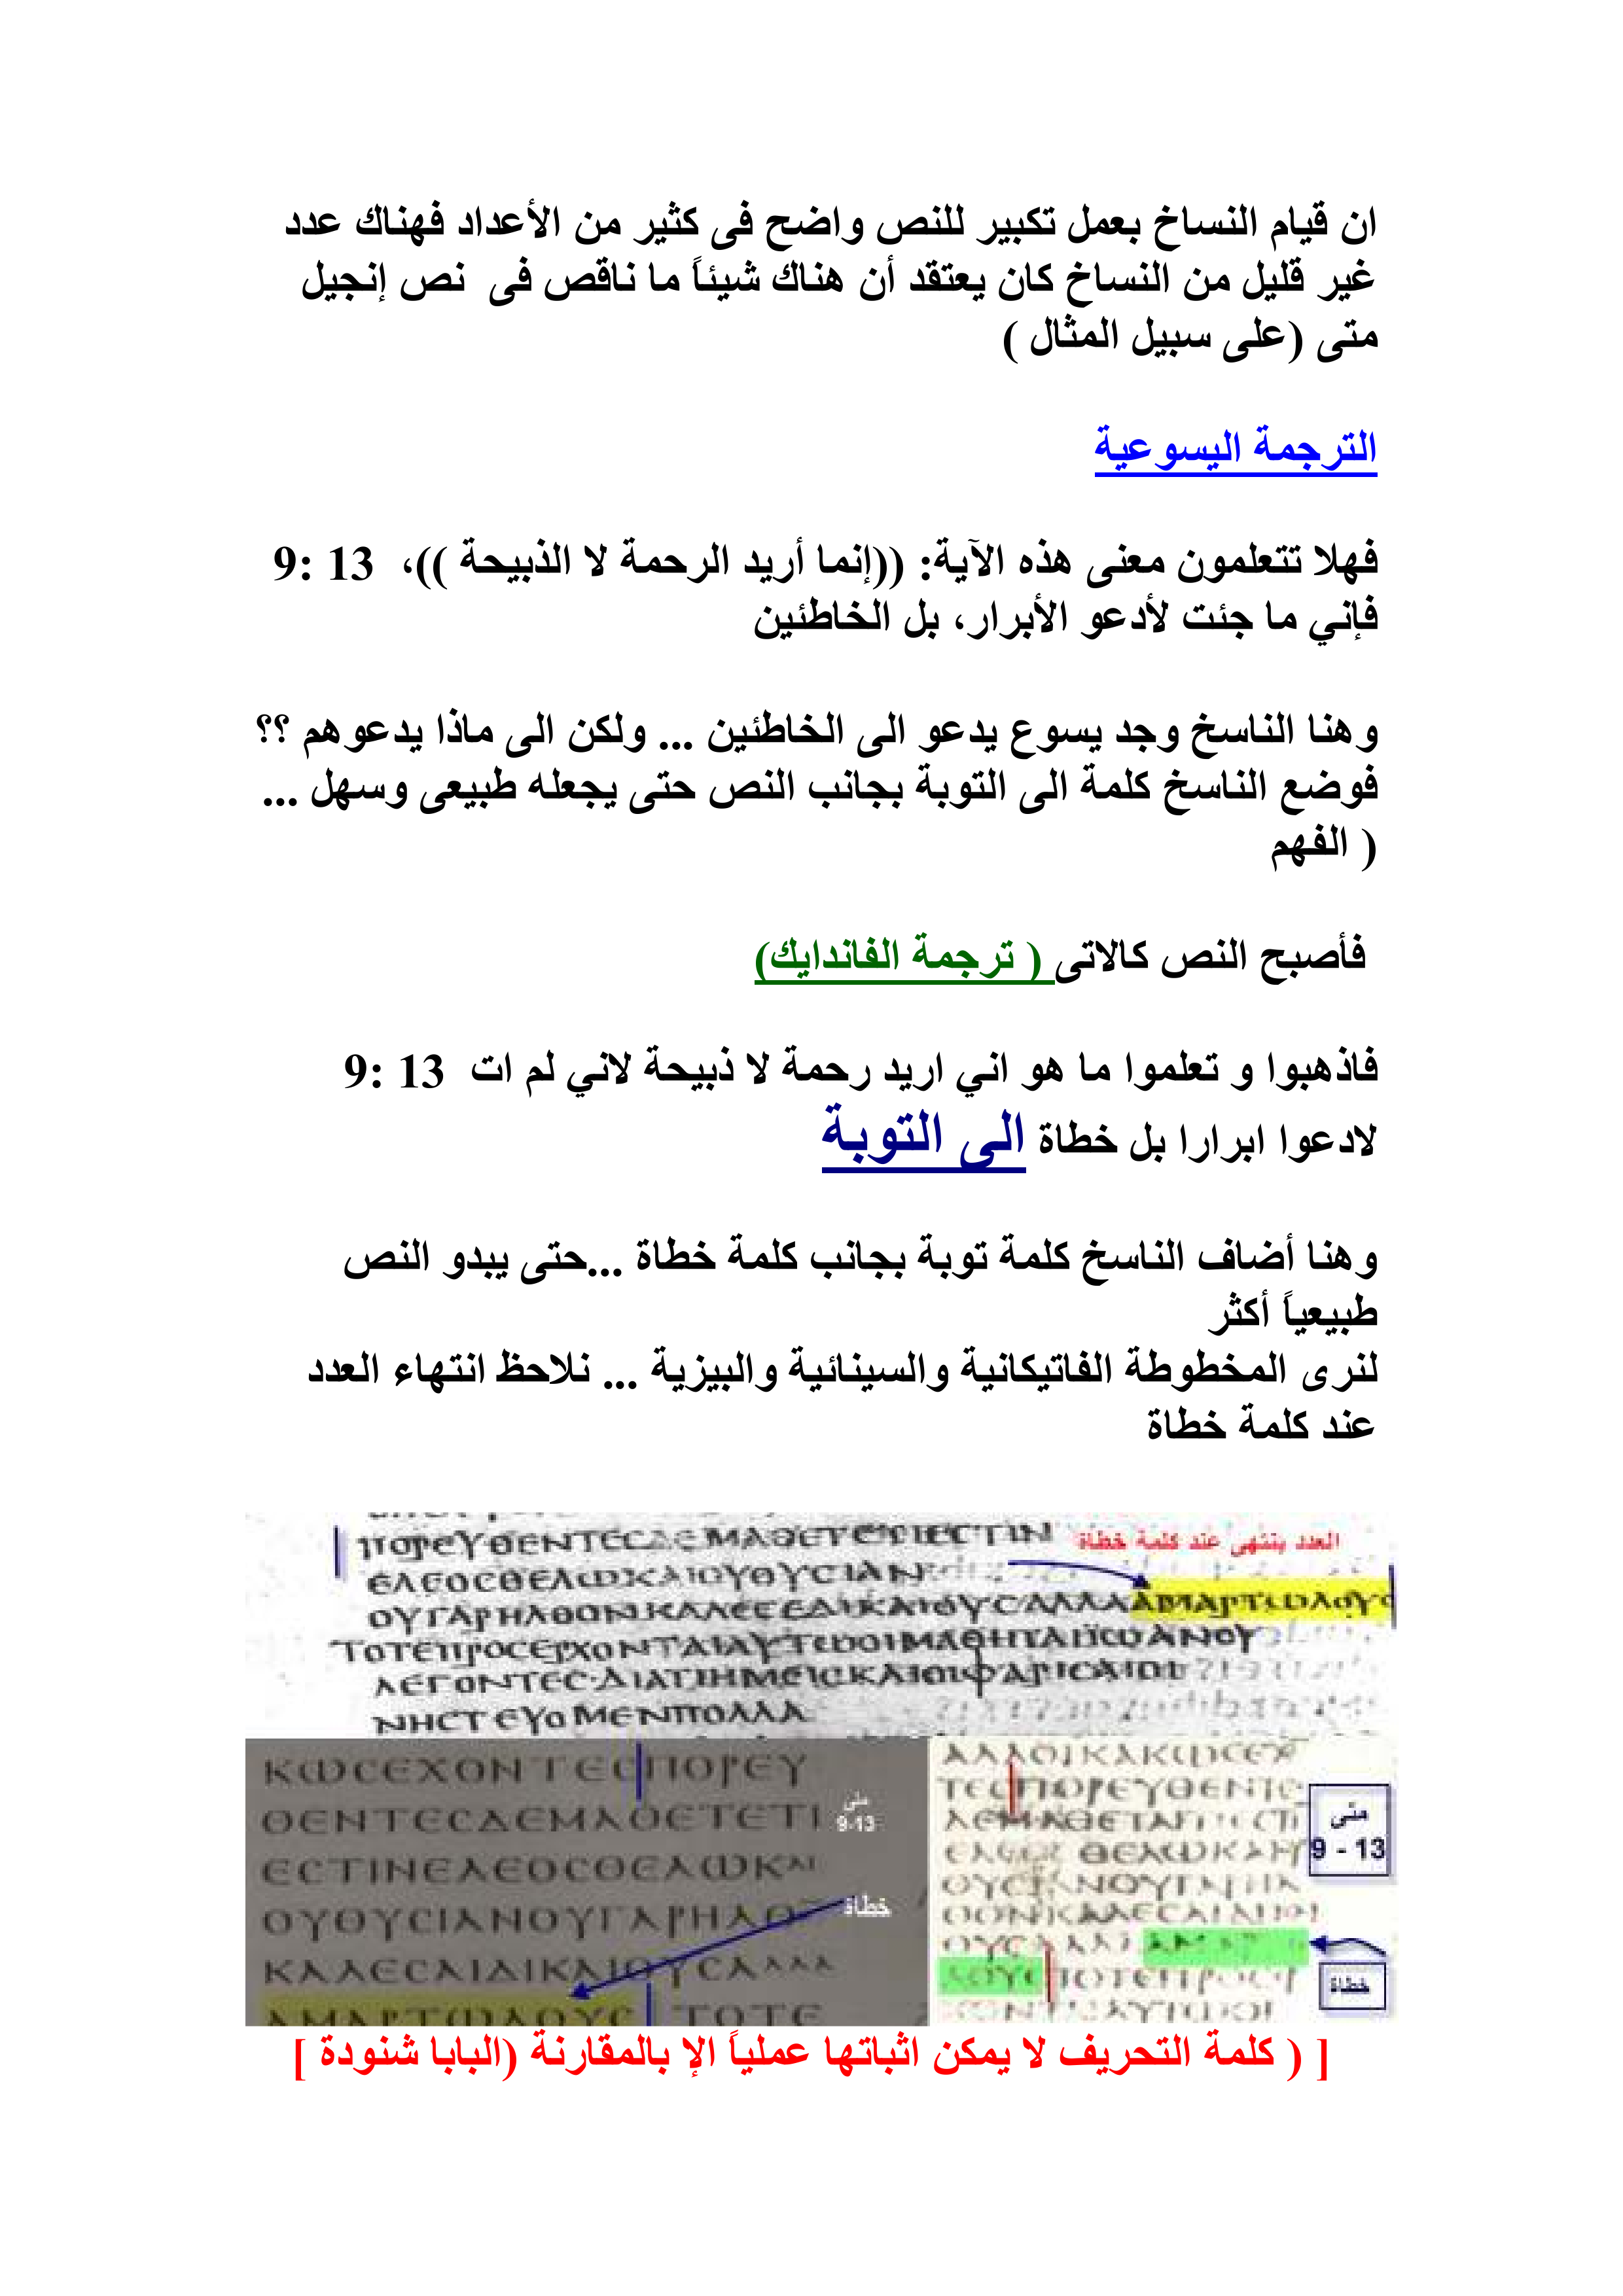 ان قيام النساخ بعمل تكبير للنص واضح فى كثير من الأعداد فهناك عدد
غير قليل من النساخ كان يعتقد أن هناك شيئاً ما ناقص فى نص إنجيل
متى (على سبيل المثال )
الترجمة اليسوعية
فهلا تتعلمون معنى هذه الآية: ((إنما أريد الرحمة لا الذبيحة ))، 13 :9
فإني ما جئت لأدعو الأبرار، بل الخاطئين
وهنا الناسخ وجد يسوع يدعو الى الخاطئين ... ولكن الى ماذا يدعوهم ؟؟
فوضع الناسخ كلمة الى التوبة بجانب النص حتى يجعله طبيعى وسهل ...
( الفهم
فأصبح النص كالاتى ( ترجمة الفاندايك)
فاذهبوا و تعلموا ما هو اني اريد رحمة لا ذبيحة لاني لم ات 13 :9
لادعوا ابرارا بل خطاة الى التوبة
وهنا أضاف الناسخ كلمة توبة بجانب كلمة خطاة ...حتى يبدو النص
طبيعياً أكثر
لنرى المخطوطة الفاتيكانية والسينائية والبيزية ... نلاحظ انتهاء العدد
عند كلمة خطاة
العدد ينتهى عند كلمة خطاة
ΕΛΕΟCΘΕΛωΚΑΙΟΥΘΥCΙΑΝ
ΝΗCΤΕΥΟΜΕΝΠΟΛΛΑ
ΚωCΕΧΟΝΤΕCΠΟΡΕΥ
ΘΕΝΤΕCΔΕΜΑΘΕΤΕΤΙ
ΕCΤΙΝΕΛΕΟCΘΕΛωΚΑΙ
ΟΥΘΥCΙΑΝΟΥΓΑΡΗΛΘΟ
ΚΑΛΕCΑΙΔΙΚΑΙΟΥCΑΛΛΑ
ΑΜΑΡΤωΛΟΥC ΤΟΤΕ
متى
9-13
خطاة
متى
9 - 13
خطاة
[ ( كلمة التحريف لا يمكن اثباتها عملياً الإ بالمقارنة (البابا شنودة ]